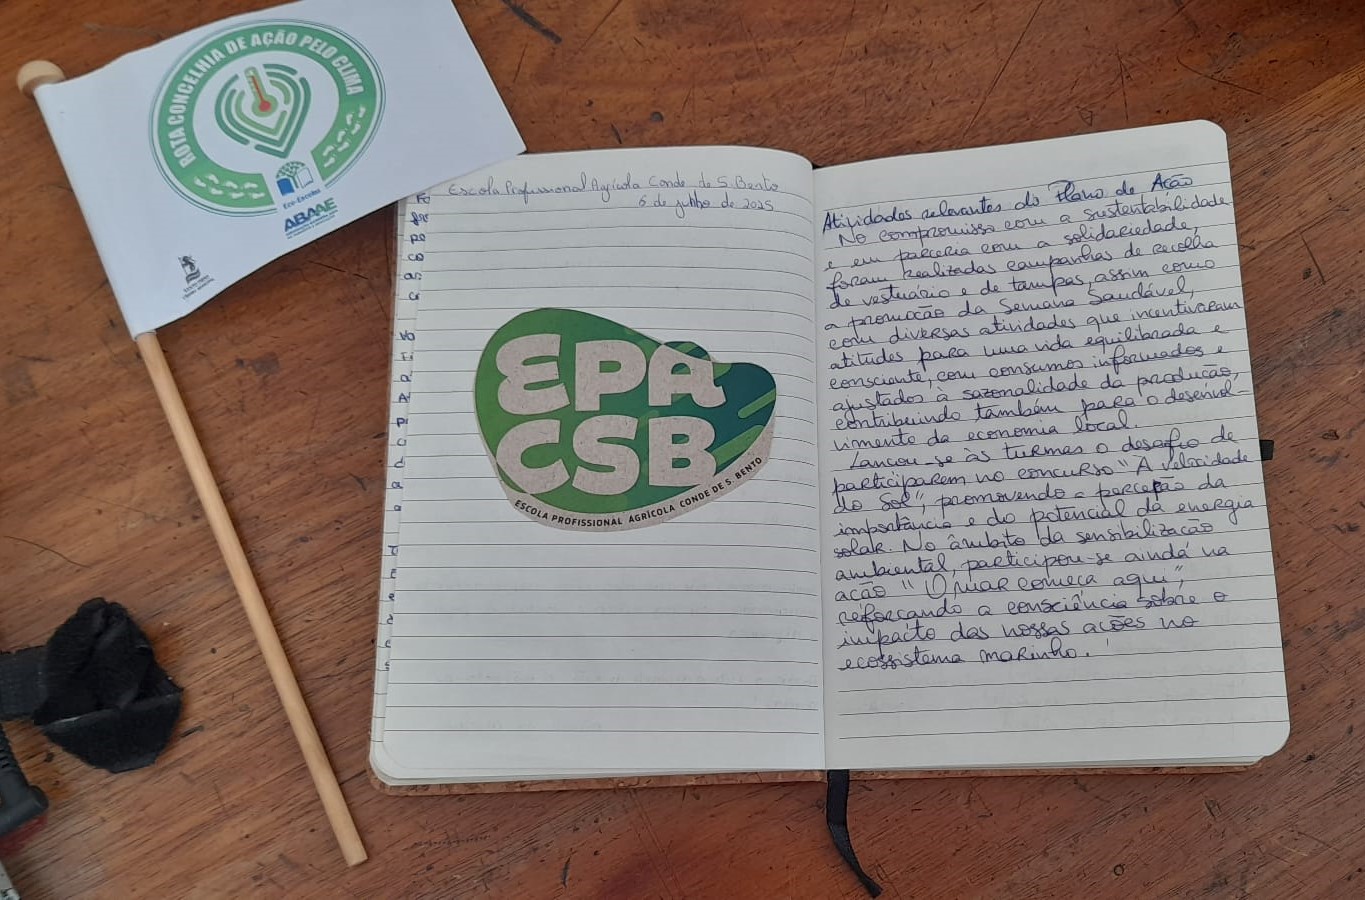 ROTA CONCELHIA DE AÇÃO PELO CLIMA
Eco-Escolas
ABAAE
Escola Profissional Agrícola Conde de S. Bento
6 de julho de 2025
EPA
CSB
ESCOLA PROFISSIONAL AGRÍCOLA CONDE DE S. BENTO
Atividades relevantes do Plano de Ação
No compromisso com a sustentabilidade
e em parceria com a solidariedade,
foram realizadas campanhas de recolha
de vestuário e de tampas, assim como
a promoção da Semana Saudável,
com diversas atividades que incentivaram
atitudes para uma vida equilibrada e
consciente, com consumos informados e
ajustados à sazonalidade da produção,
contribuindo também para o desenvol-
vimento da economia local.
Lançou-se às turmas o desafio de
participarem no concurso "A velocidade
do Sol", promovendo a perceção da
importância e do potencial da energia
solar. No âmbito da sensibilização
ambiental, participou-se ainda na
ação "O mar começa aqui",
reforçando a consciência sobre o
impacto das nossas ações no
ecossistema marinho.